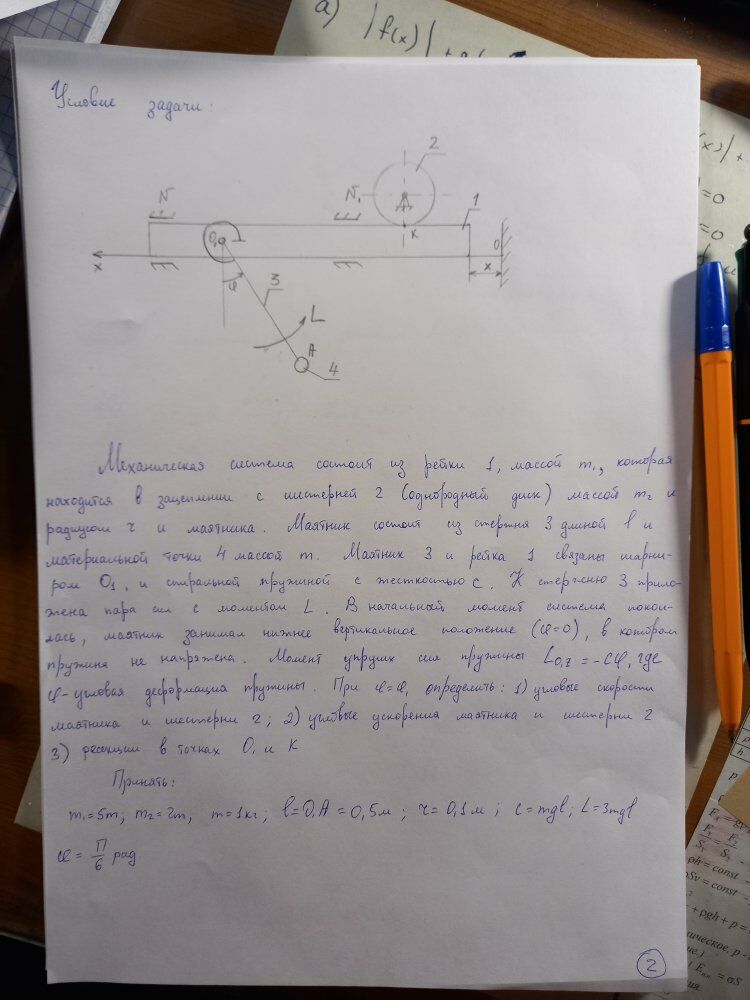 а) |f(x)| +
Условие задачи:
2
N
N₁
1
O₁
K
O
x
x
φ
3
L
A
4
Механическая система состоит из рейки 1, массой m₁, которая
находится в зацеплении с шестерней 2 (однородный диск) массой m₂ и
радиусом r и маятника. Маятник состоит из стержня 3 длиной l и
материальной точки 4 массой m. Маятник 3 и рейка 1 связаны шарни-
ром O₁, и спиральной пружиной с жесткостью c. К стержню 3 прило-
жена пара сил с моментом L. В начальный момент система покои-
лась, маятник занимал нижнее вертикальное положение (φ=0), в котором
пружина не напряжена. Момент упругих сил пружины L₀₁z = -cφ, где
φ-угловая деформация пружины. При φ=φ₁ определить: 1) угловые скорости
маятника и шестерни 2; 2) угловые ускорения маятника и шестерни 2
3) реакции в точках O₁ и K
Принять:
m₁=5m; m₂=2m, m=1кг; l=O₁A=0,5м; r=0,1м; c=mgl; L=3mgl
φ = π/6 рад.
2
=0
=0
ph = const
ρSv = const